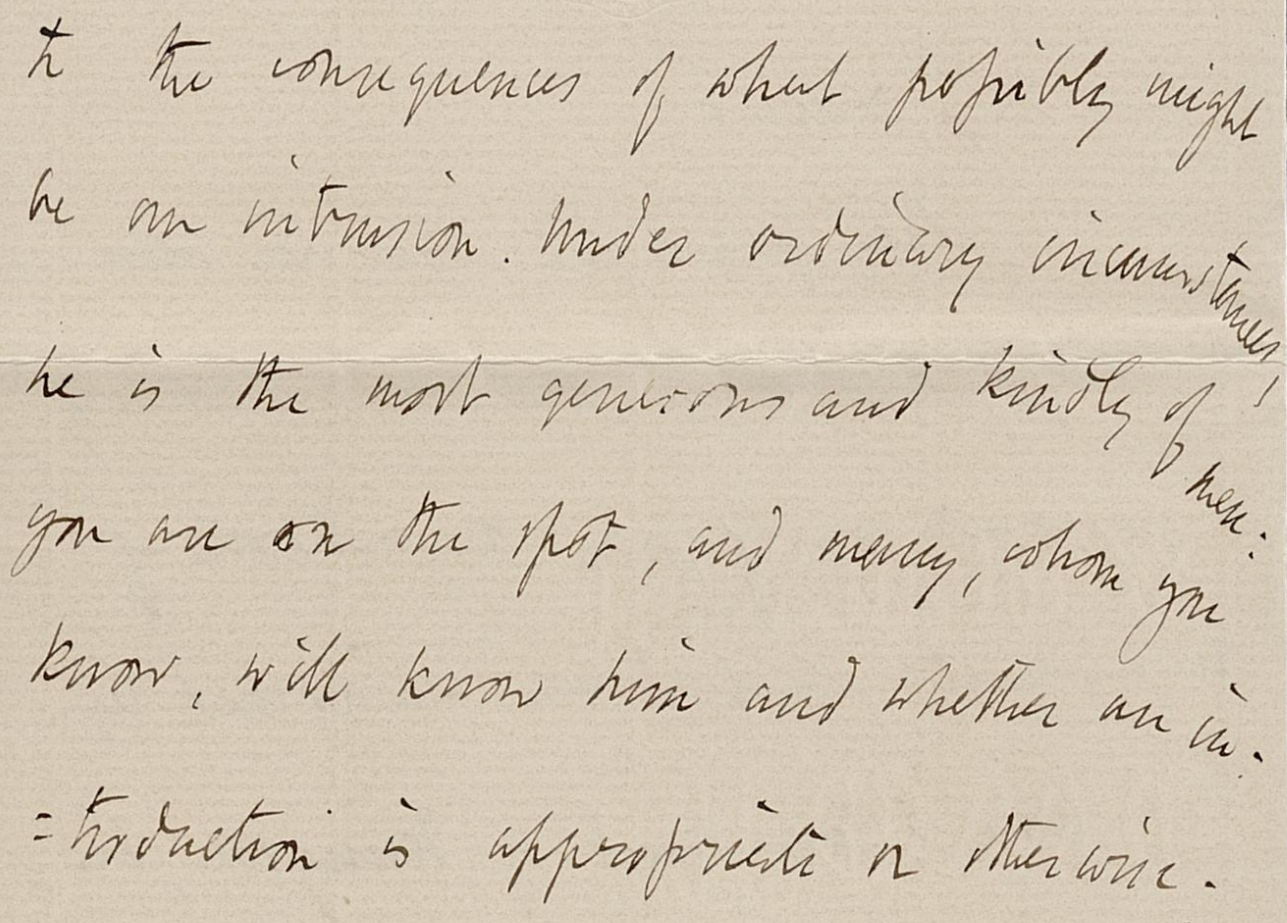 to the consequences of what possibly might
be an intrusion. Under ordinary circumstances,
he is the most generous and kindly of men:
you are on the spot, and many, whom you
know, will know him and whether an in-
=troduction is appropriate or otherwise.